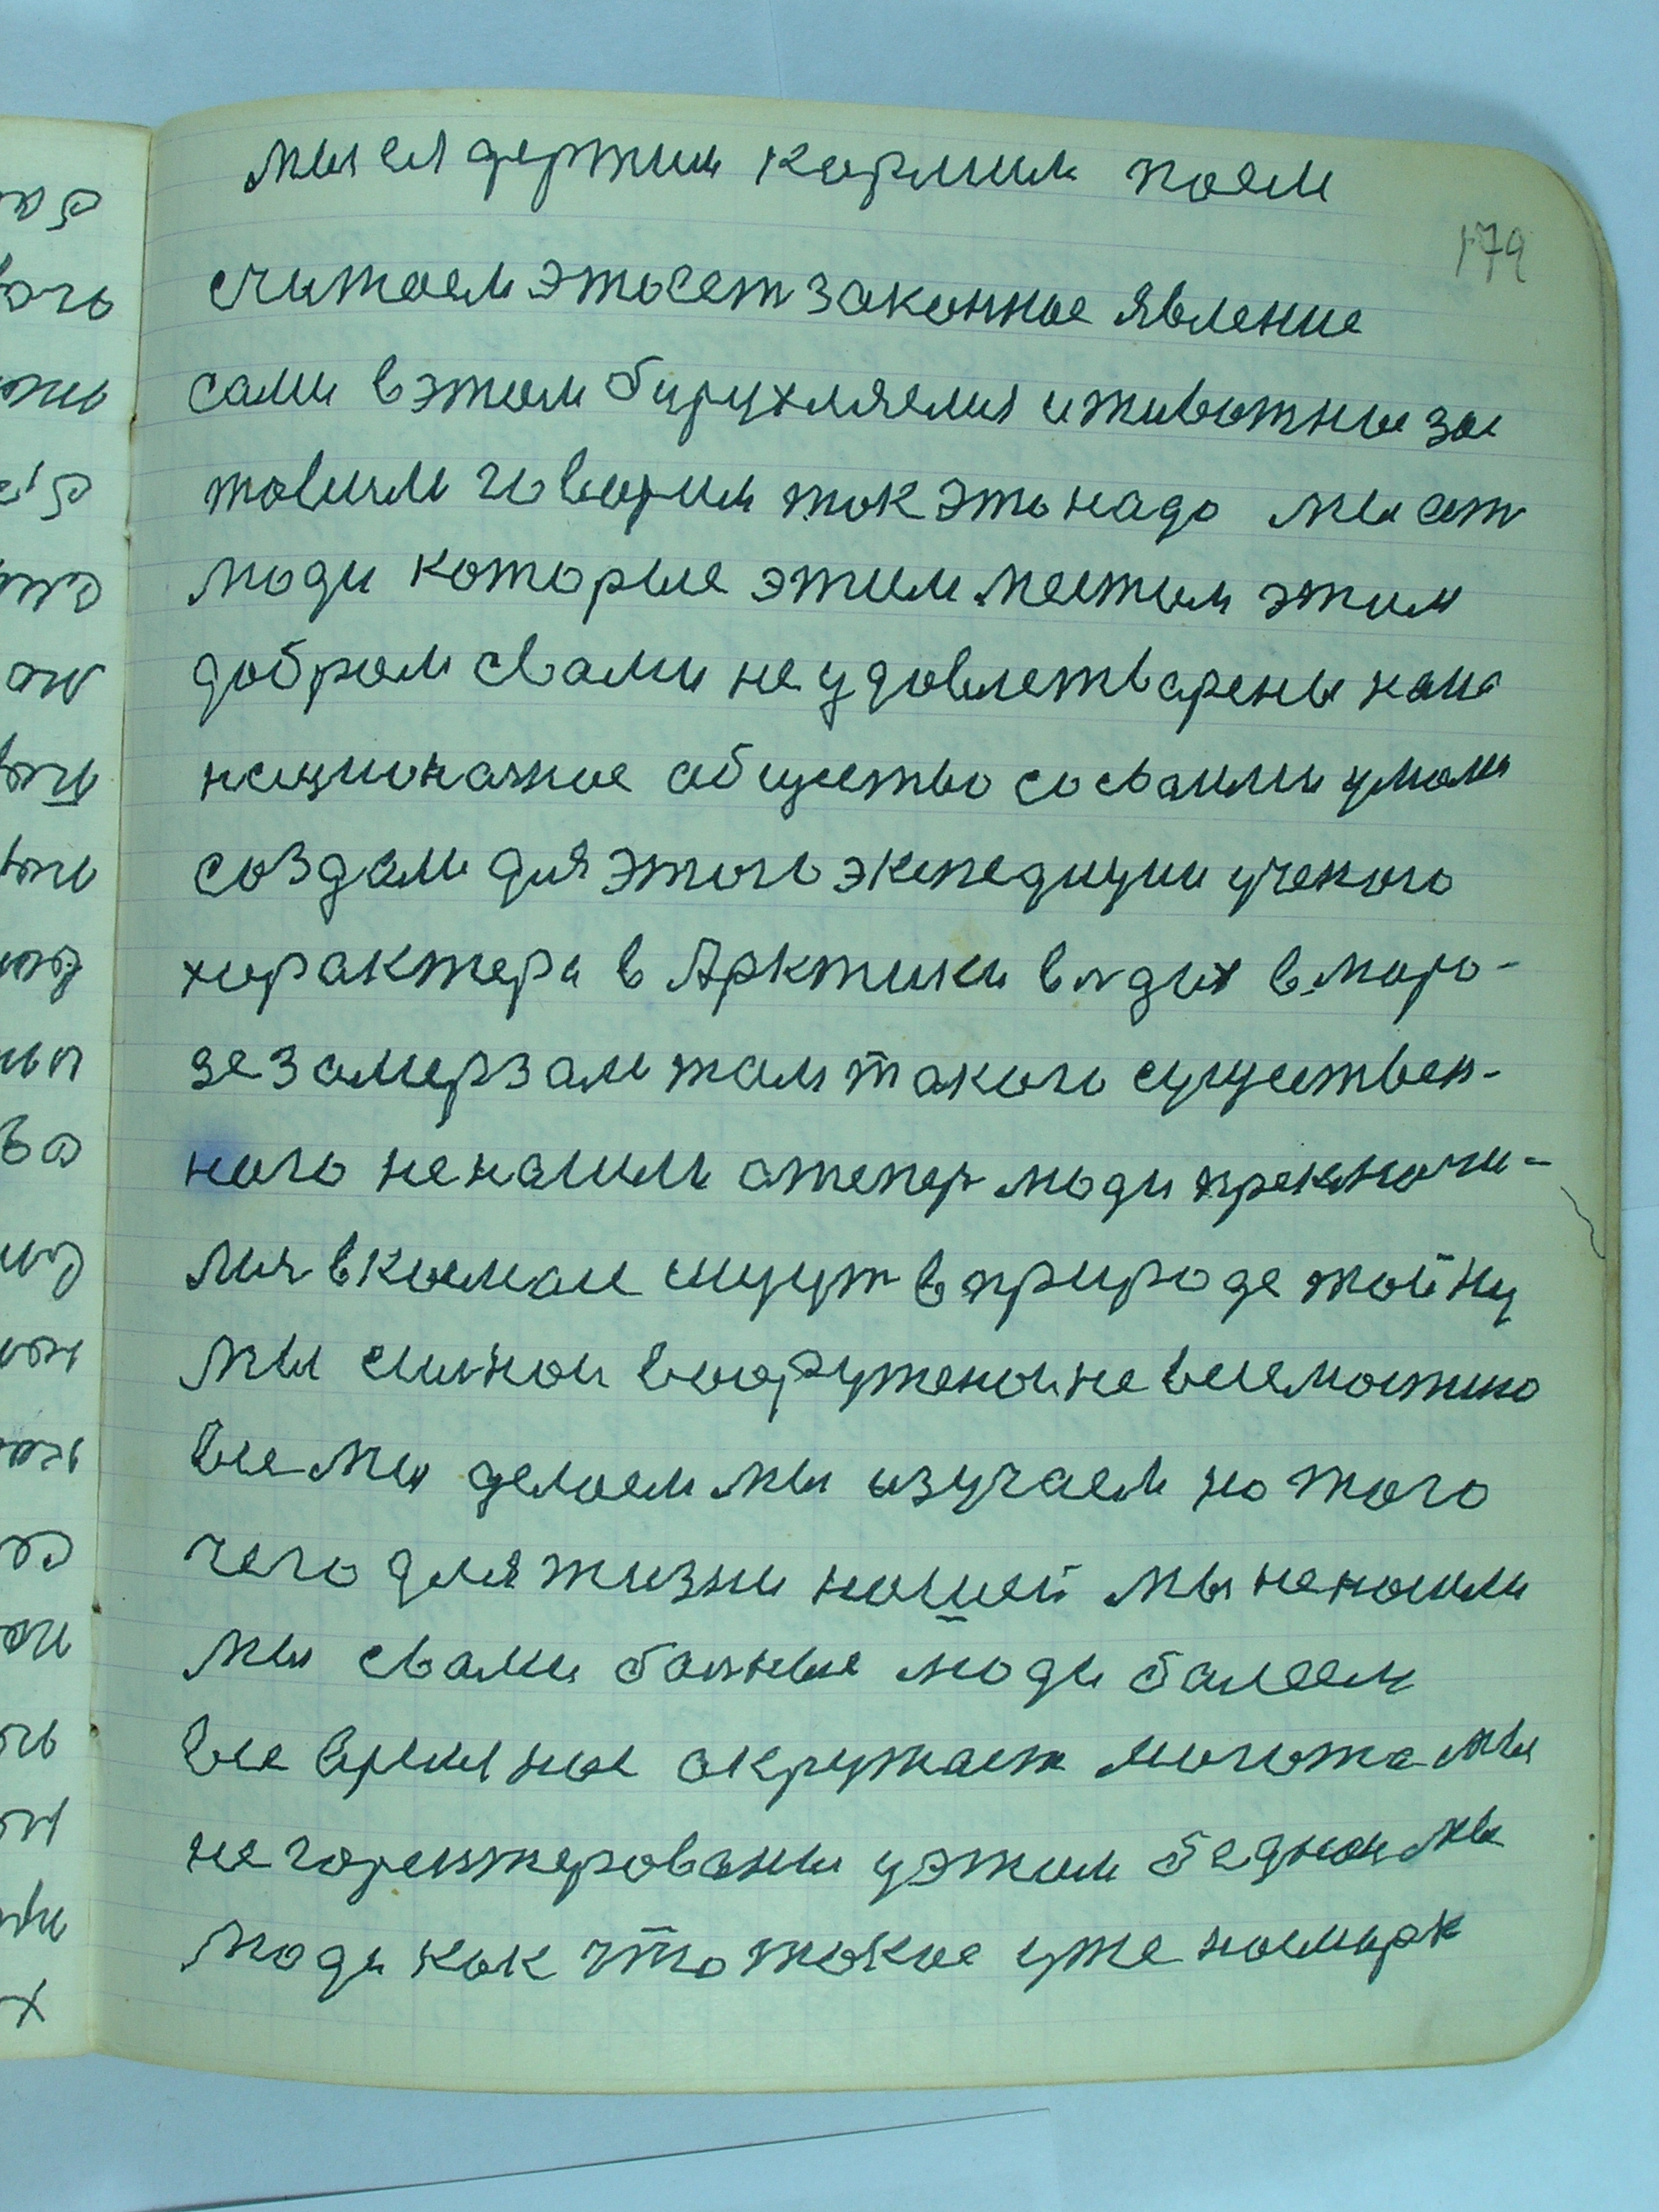 мы ея держим кормим поем
179
считаем это ест законное явление
сами в этом и животные за
товцем говорим так это надо мы ест
люди которые этим местом этим
добром свами не удовлетварены наше
национальное общество сосваими умами
создали для этого экспедиции ученого
характера в Арктики в лдих в моро-
зе замерзали там такого существен-
ного ненашли атепер люди преключи-
лия в космас ищут в природе тайну
мы силнои вооружены не всемостию
все мы делаем мы изучаем но того
чего для жизни нашей мы ненашли
мы свами болные люди балеем
все время нас окружает могота мы
не горентерованы у этом бедном мы
люди как что такое уже насморк